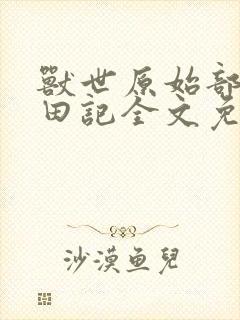 獸世原始部
田記全文免
沙漠鱼兒